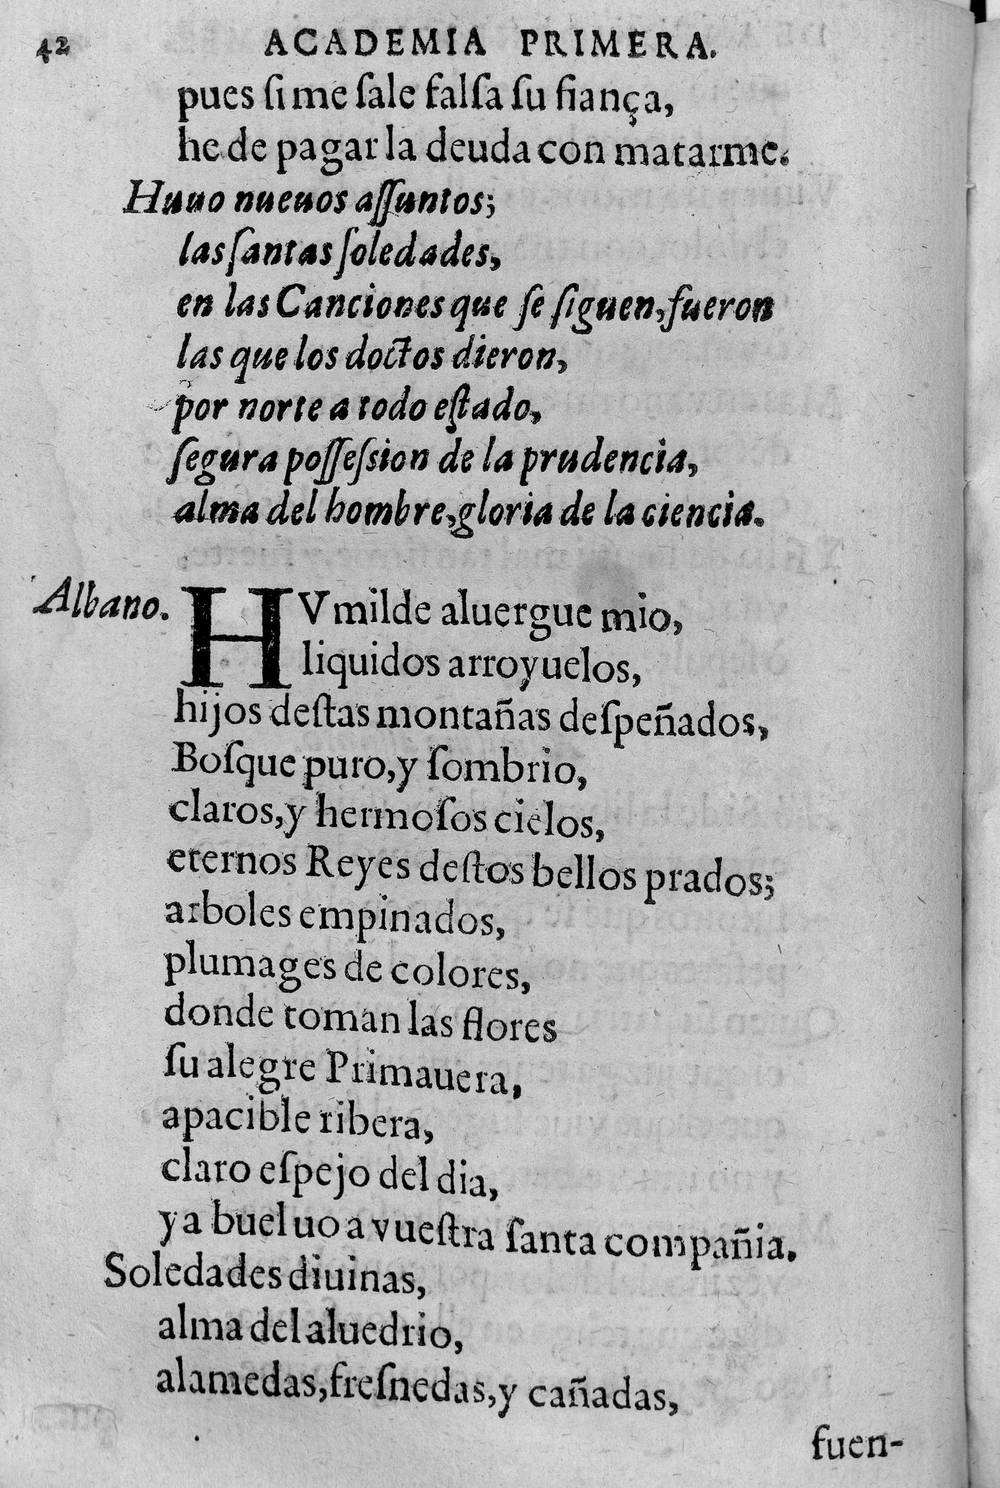 42 ACADEMIA PRIMERA.
pues ſi me ſale falſa ſu fiança,
he de pagar la deuda con matarme.
Huuo nueuos aſſuntos;
las ſantas ſoledades,
en las Canciones que ſe ſiguen, fueron
las que los doctos dieron,
por norte a todo eſtado,
ſegura poſſeſsion de la prudencia,
alma del hombre, gloria de la ciencia.
Albano. HVmilde aluergue mio,
liquidos arroyuelos,
hijos deſtas montañas deſpeñados,
Boſque puro, y ſombrio,
claros, y hermoſos cielos,
eternos Reyes deſtos bellos prados;
arboles empinados,
plumages de colores,
donde toman las flores
ſu alegre Primauera,
apacible ribera,
claro eſpejo del dia,
ya bueluo a vueſtra ſanta compañia.
Soledades diuinas,
alma del aluedrio,
alamedas, freſnedas, y cañadas,
fuen-